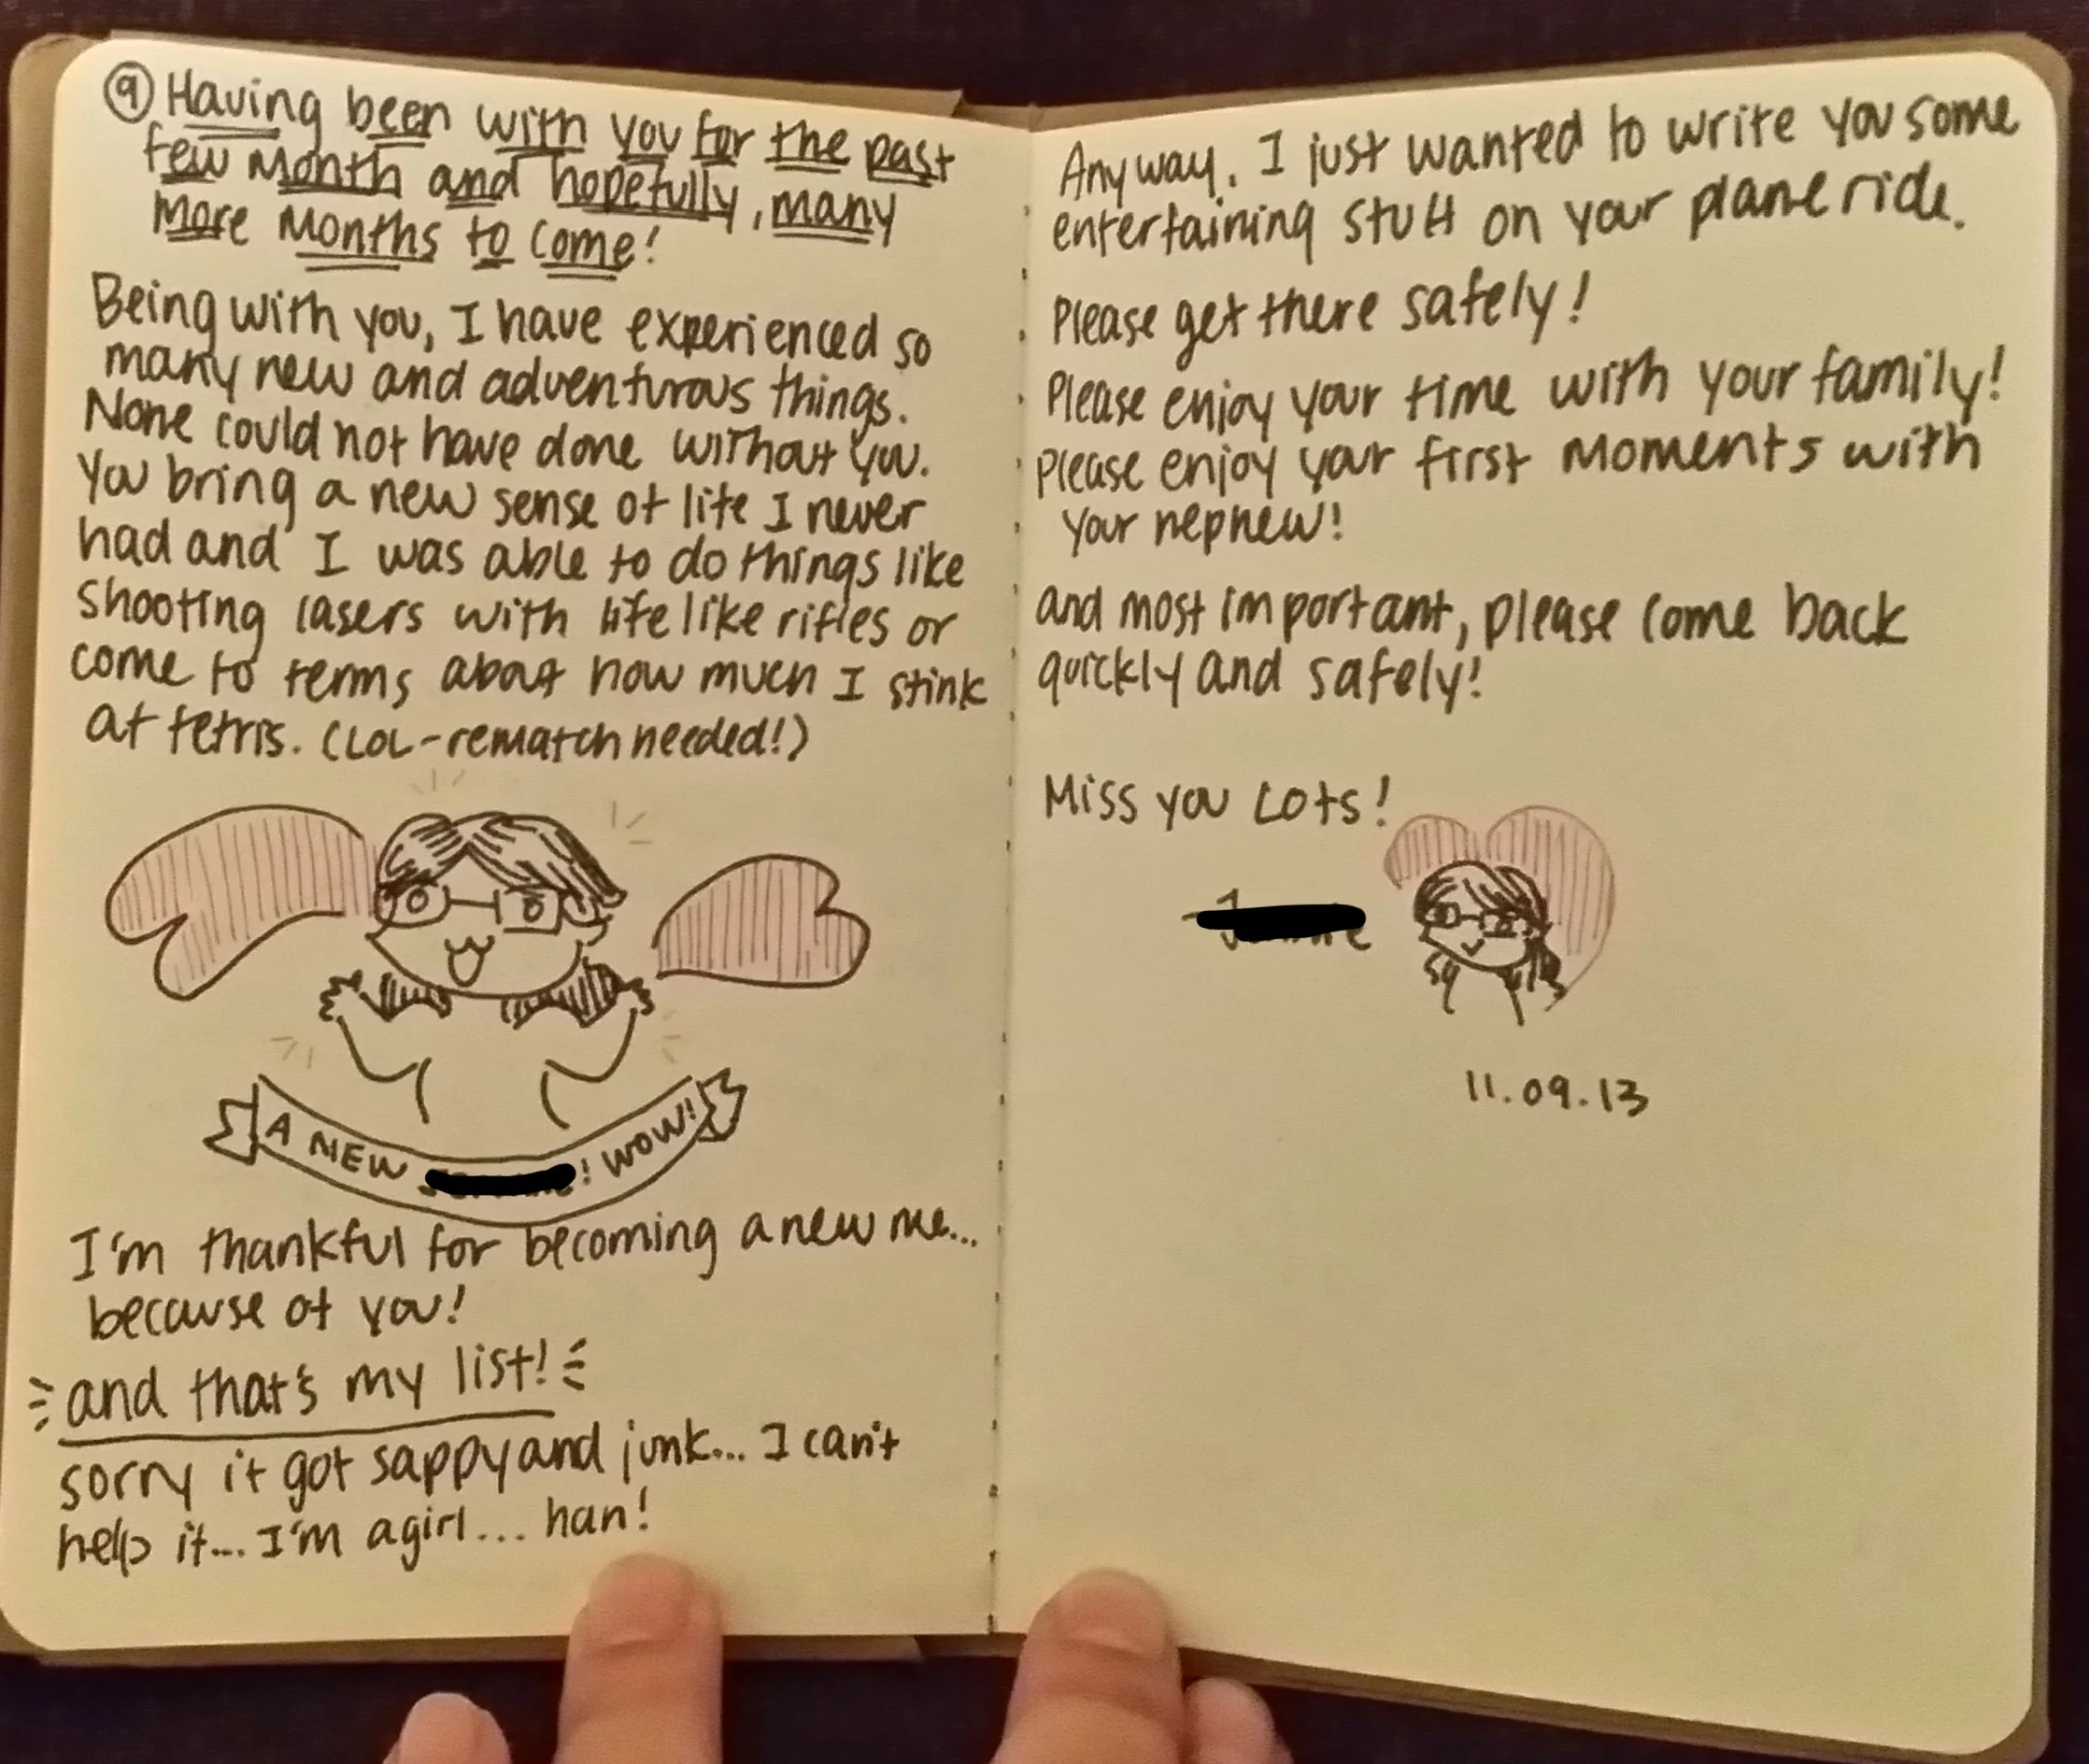 9 Having been with you for the past
few month and hopefully, many
more months to come!
Being with you, I have experienced so
many new and adventurous things.
None could not have done without you.
You bring a new sense of life I never
had and I was able to do things like
shooting lasers with life like rifles or
come to terms about how much I stink
at tetris. (LOL-rematch needed!)
A NEW ! WOW!
I'm thankful for becoming a new me...
because of you!
and that's my list!
sorry it got sappy and junk... I can't
help it.... I'm a girl... han!
Anyway, I just wanted to write you some
entertaining stuff on your plane ride.
Please get there safely!
Please enjoy your time with your family!
Please enjoy your first moments with
your nephew!
and most important, please come back
quickly and safely!
Miss you Lots!
11.09.13